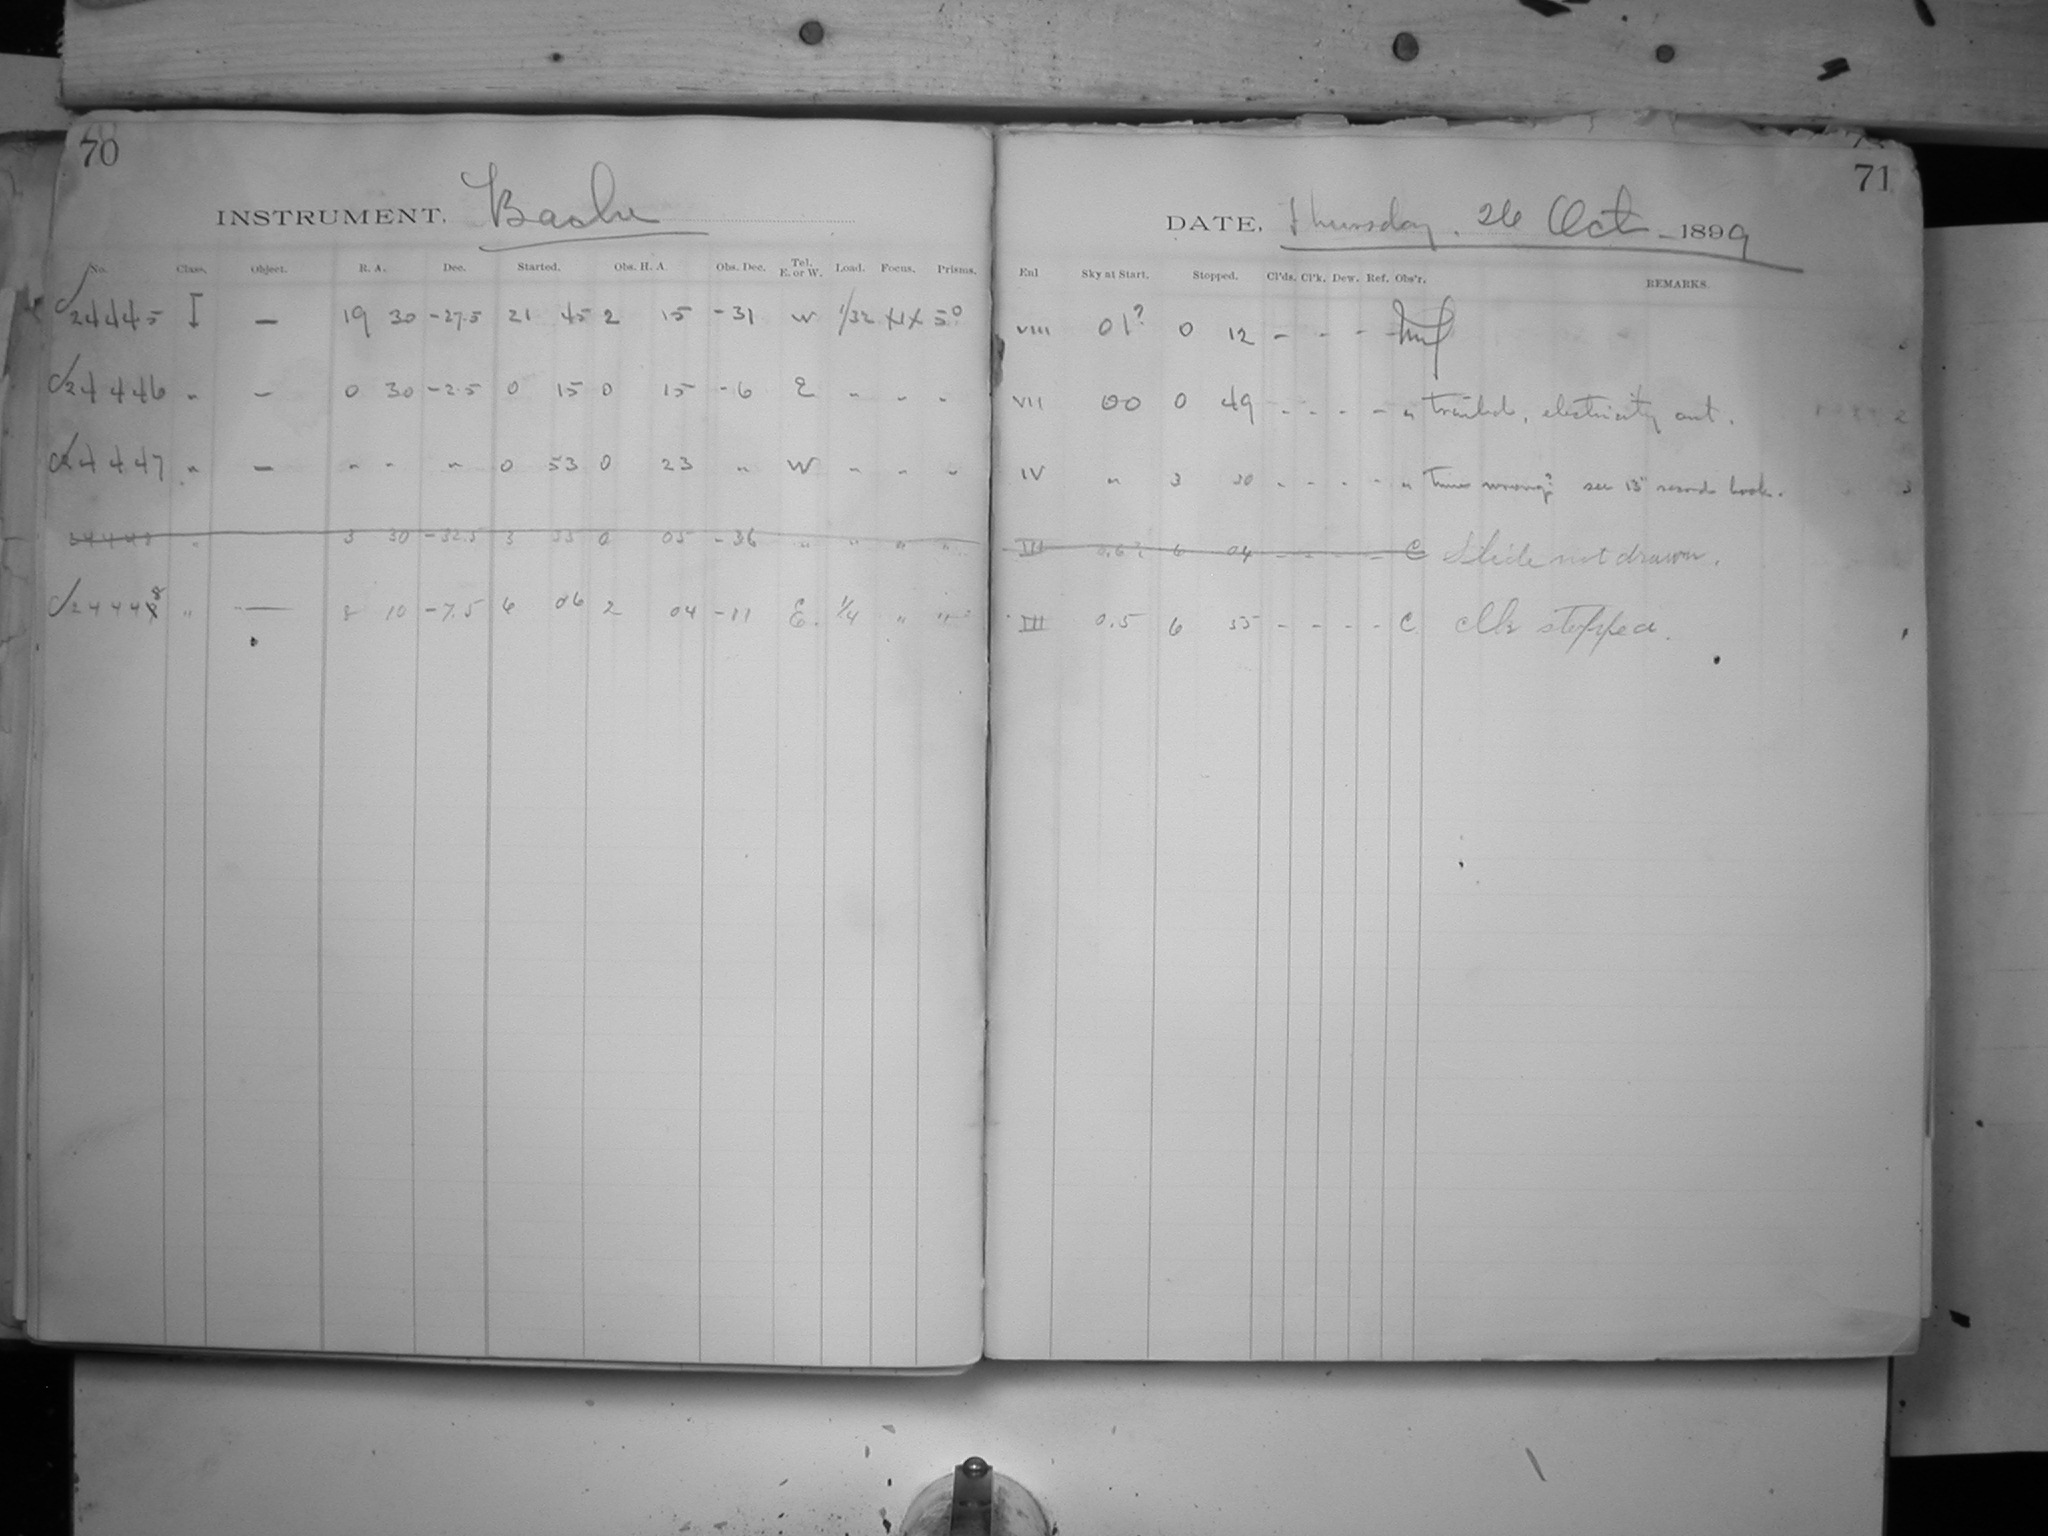 70
INSTRUMENT. Bache
No. Class. Object. R. A. Dec. Started. Obs. H. A. Obs. Dec. Tel. E. or W. Load. Focus. Prisms.
24445 I — 19 30 -27.5 21 45 2 15 -31 W 1/32 5°
24446 " — 0 30 -2.5 0 15 0 15 -6 E " " "
24447 " — " " " 0 53 0 23 " W " " "
3 30 -32.5 3 35 0 05 -36 " " " "
24448 " — 8 10 -7.5 6 06 2 04 -11 E. 1/4 " "
71
DATE, Thursday. 26 Oct -1899
Enl Sky at Start. Stopped. Cl'ds. Cl'k. Dew. Ref. Obs'r. REMARKS.
VIII 01? 0 12 - - - -
VII 00 0 49 - - - - " trailed, electricity out.
IV " 3 30 - - - - " Time wrong? see 13" record book.
III 6 04 - - - - C Slide not drawn.
III 0.5 6 35 - - - - C Clk stopped.